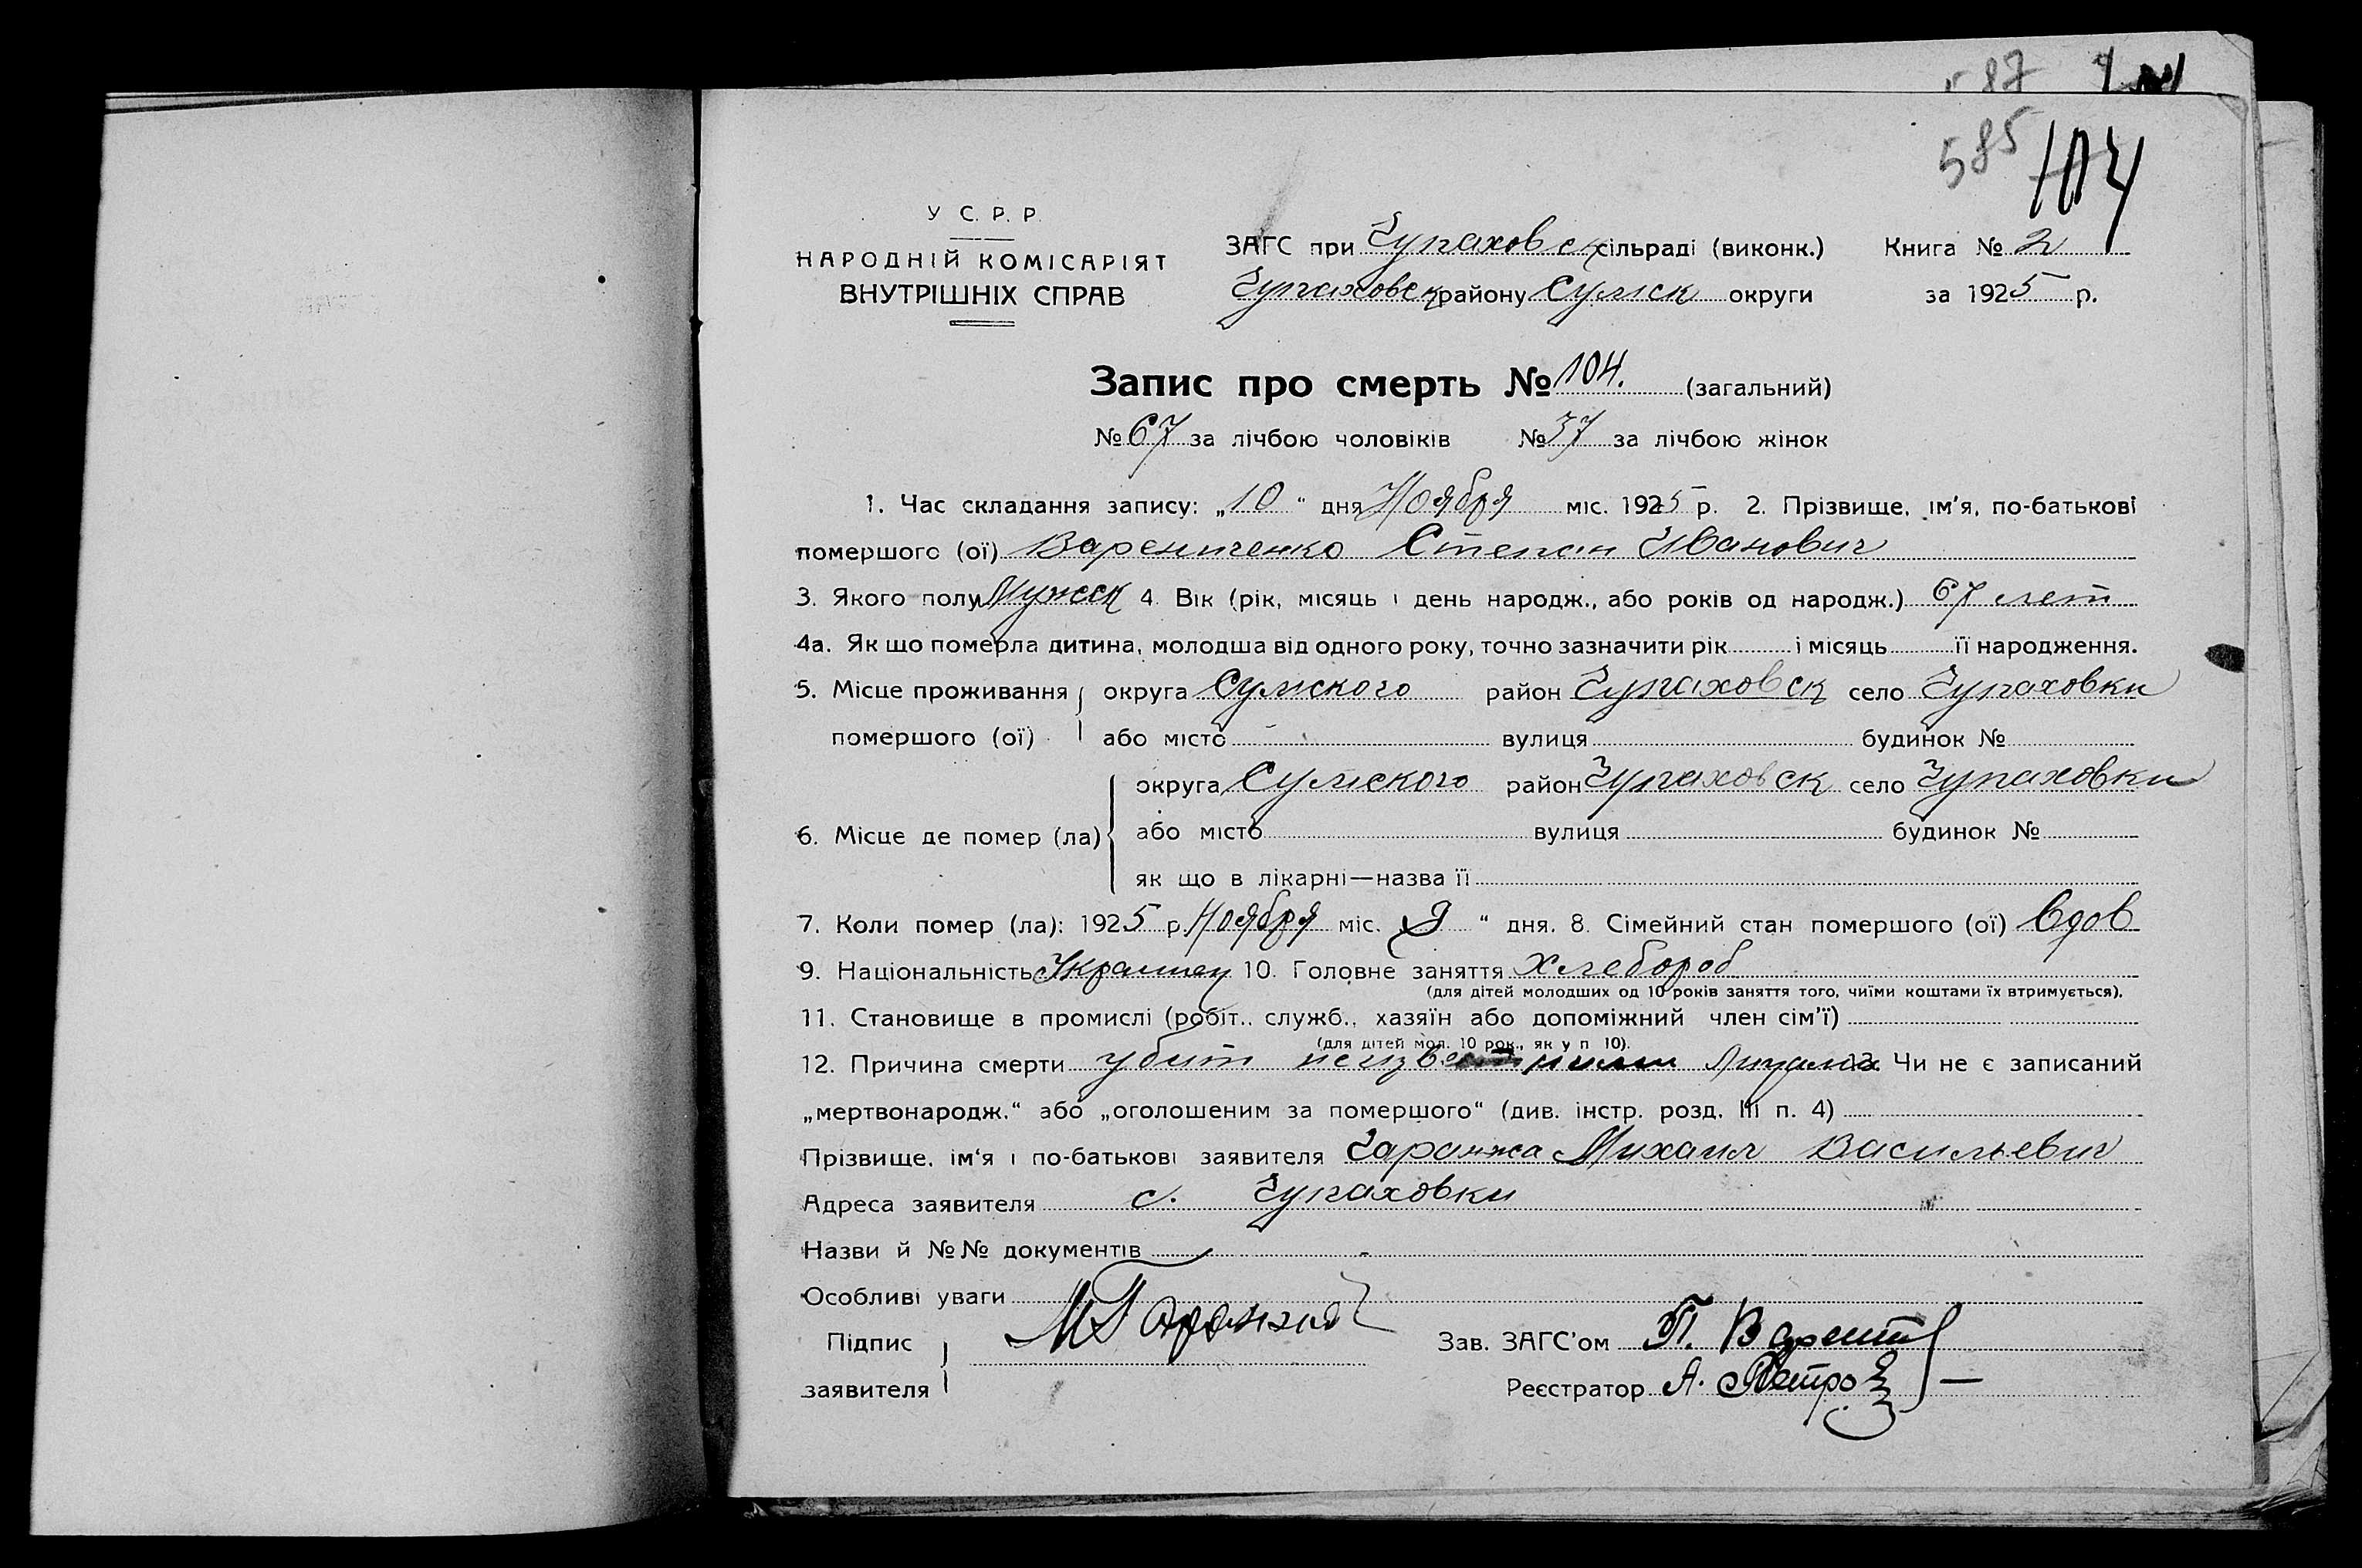 587
585 104
У С. Р. Р.
НАРОДНІЙ КОМІСАРІЯТ
ВНУТРІШНІХ СПРАВ
ЗАГС при Чупаховск сільраді (виконк.) Книга № 2
Чупаховск району Сумск округи за 1925 р.
Запис про смерть № 104. (загальний)
№ 67 за лічбою чоловіків № 37 за лічбою жінок
1. Час складання запису: „10" дня Ноября міс. 1925 р. 2. Прізвище, ім'я, по-батькові
помершого (ої) Степан Иванович
3. Якого полу Мужск 4. Вік (рік, місяць і день народж., або років од народж.) 67 лет
4а. Як що померла дитина, молодша від одного року, точно зазначити рік і місяць її народження.
5. Місце проживання округа Сумского район Чупаховск село Чупаховки
помершого (ої) або місто вулиця будинок №
округа Сумского район Чупаховск село Чупаховки
6. Місце де помер (ла) або місто вулиця будинок №
як що в лікарні—назва її
7. Коли помер (ла): 1925 р. Ноября міс. 9 " дня. 8. Сімейний стан помершого (ої) Вдов
9. Національність Украинец 10. Головне заняття Хлебороб
(для дітей молодших од 10 років заняття того, чиїми коштами їх втримується).
11. Становище в промислі (робіт., служб., хазяїн або допоміжний член сім'ї)
(для дітей мол. 10 рок., як у п 10).
12. Причина смерти убит неизвестними 13. Чи не є записаний
„мертвонародж." або „оголошеним за помершого" (див. інстр. розд. III п. 4)
Прізвище, ім'я і по-батькові заявителя Гаранжа Михаил Васильевич
Адреса заявителя с. Чупаховки
Назви й №№ документів
Особливі уваги
Підпис М Гаранжа Зав. ЗАГС'ом П. Варент
заявителя Реєстратор А. Петро